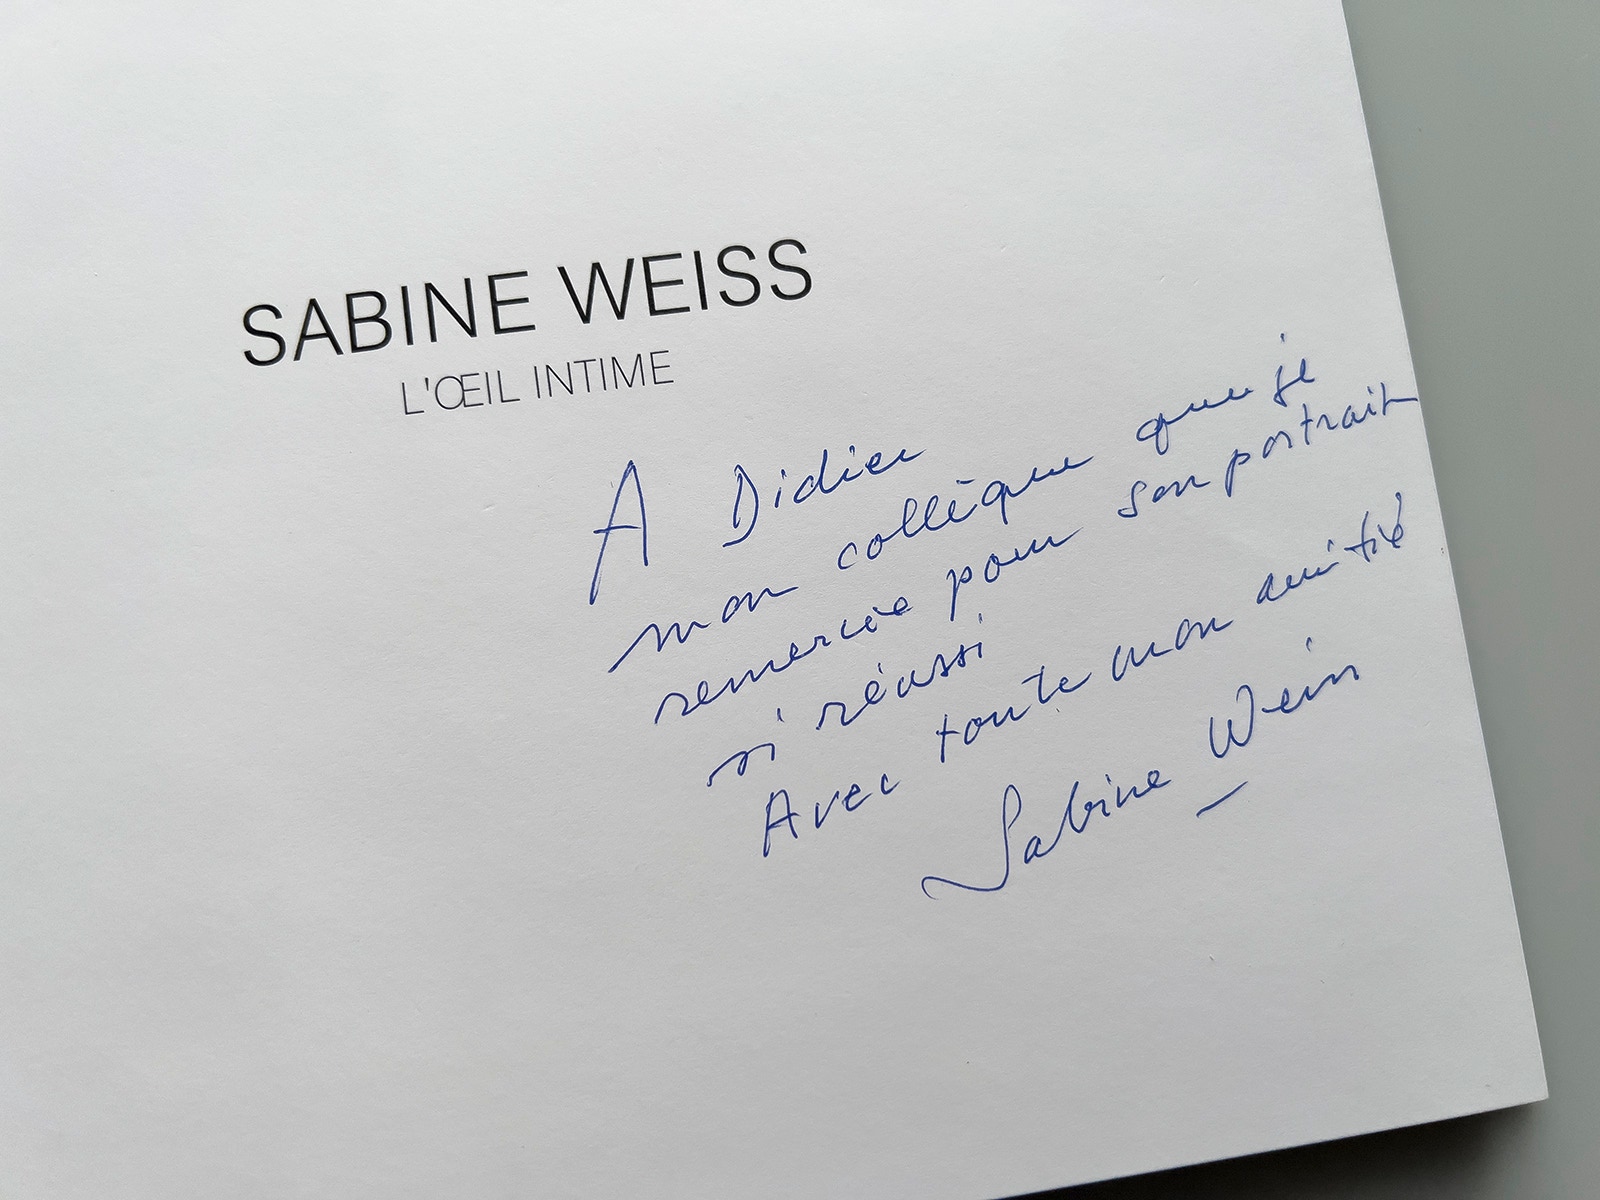 SABINE WEISS
L'ŒIL INTIME
A Didier
mon collègue que je
remercie pour son portrait
si réussi
Avec toute mon amitié
Sabine Weiss